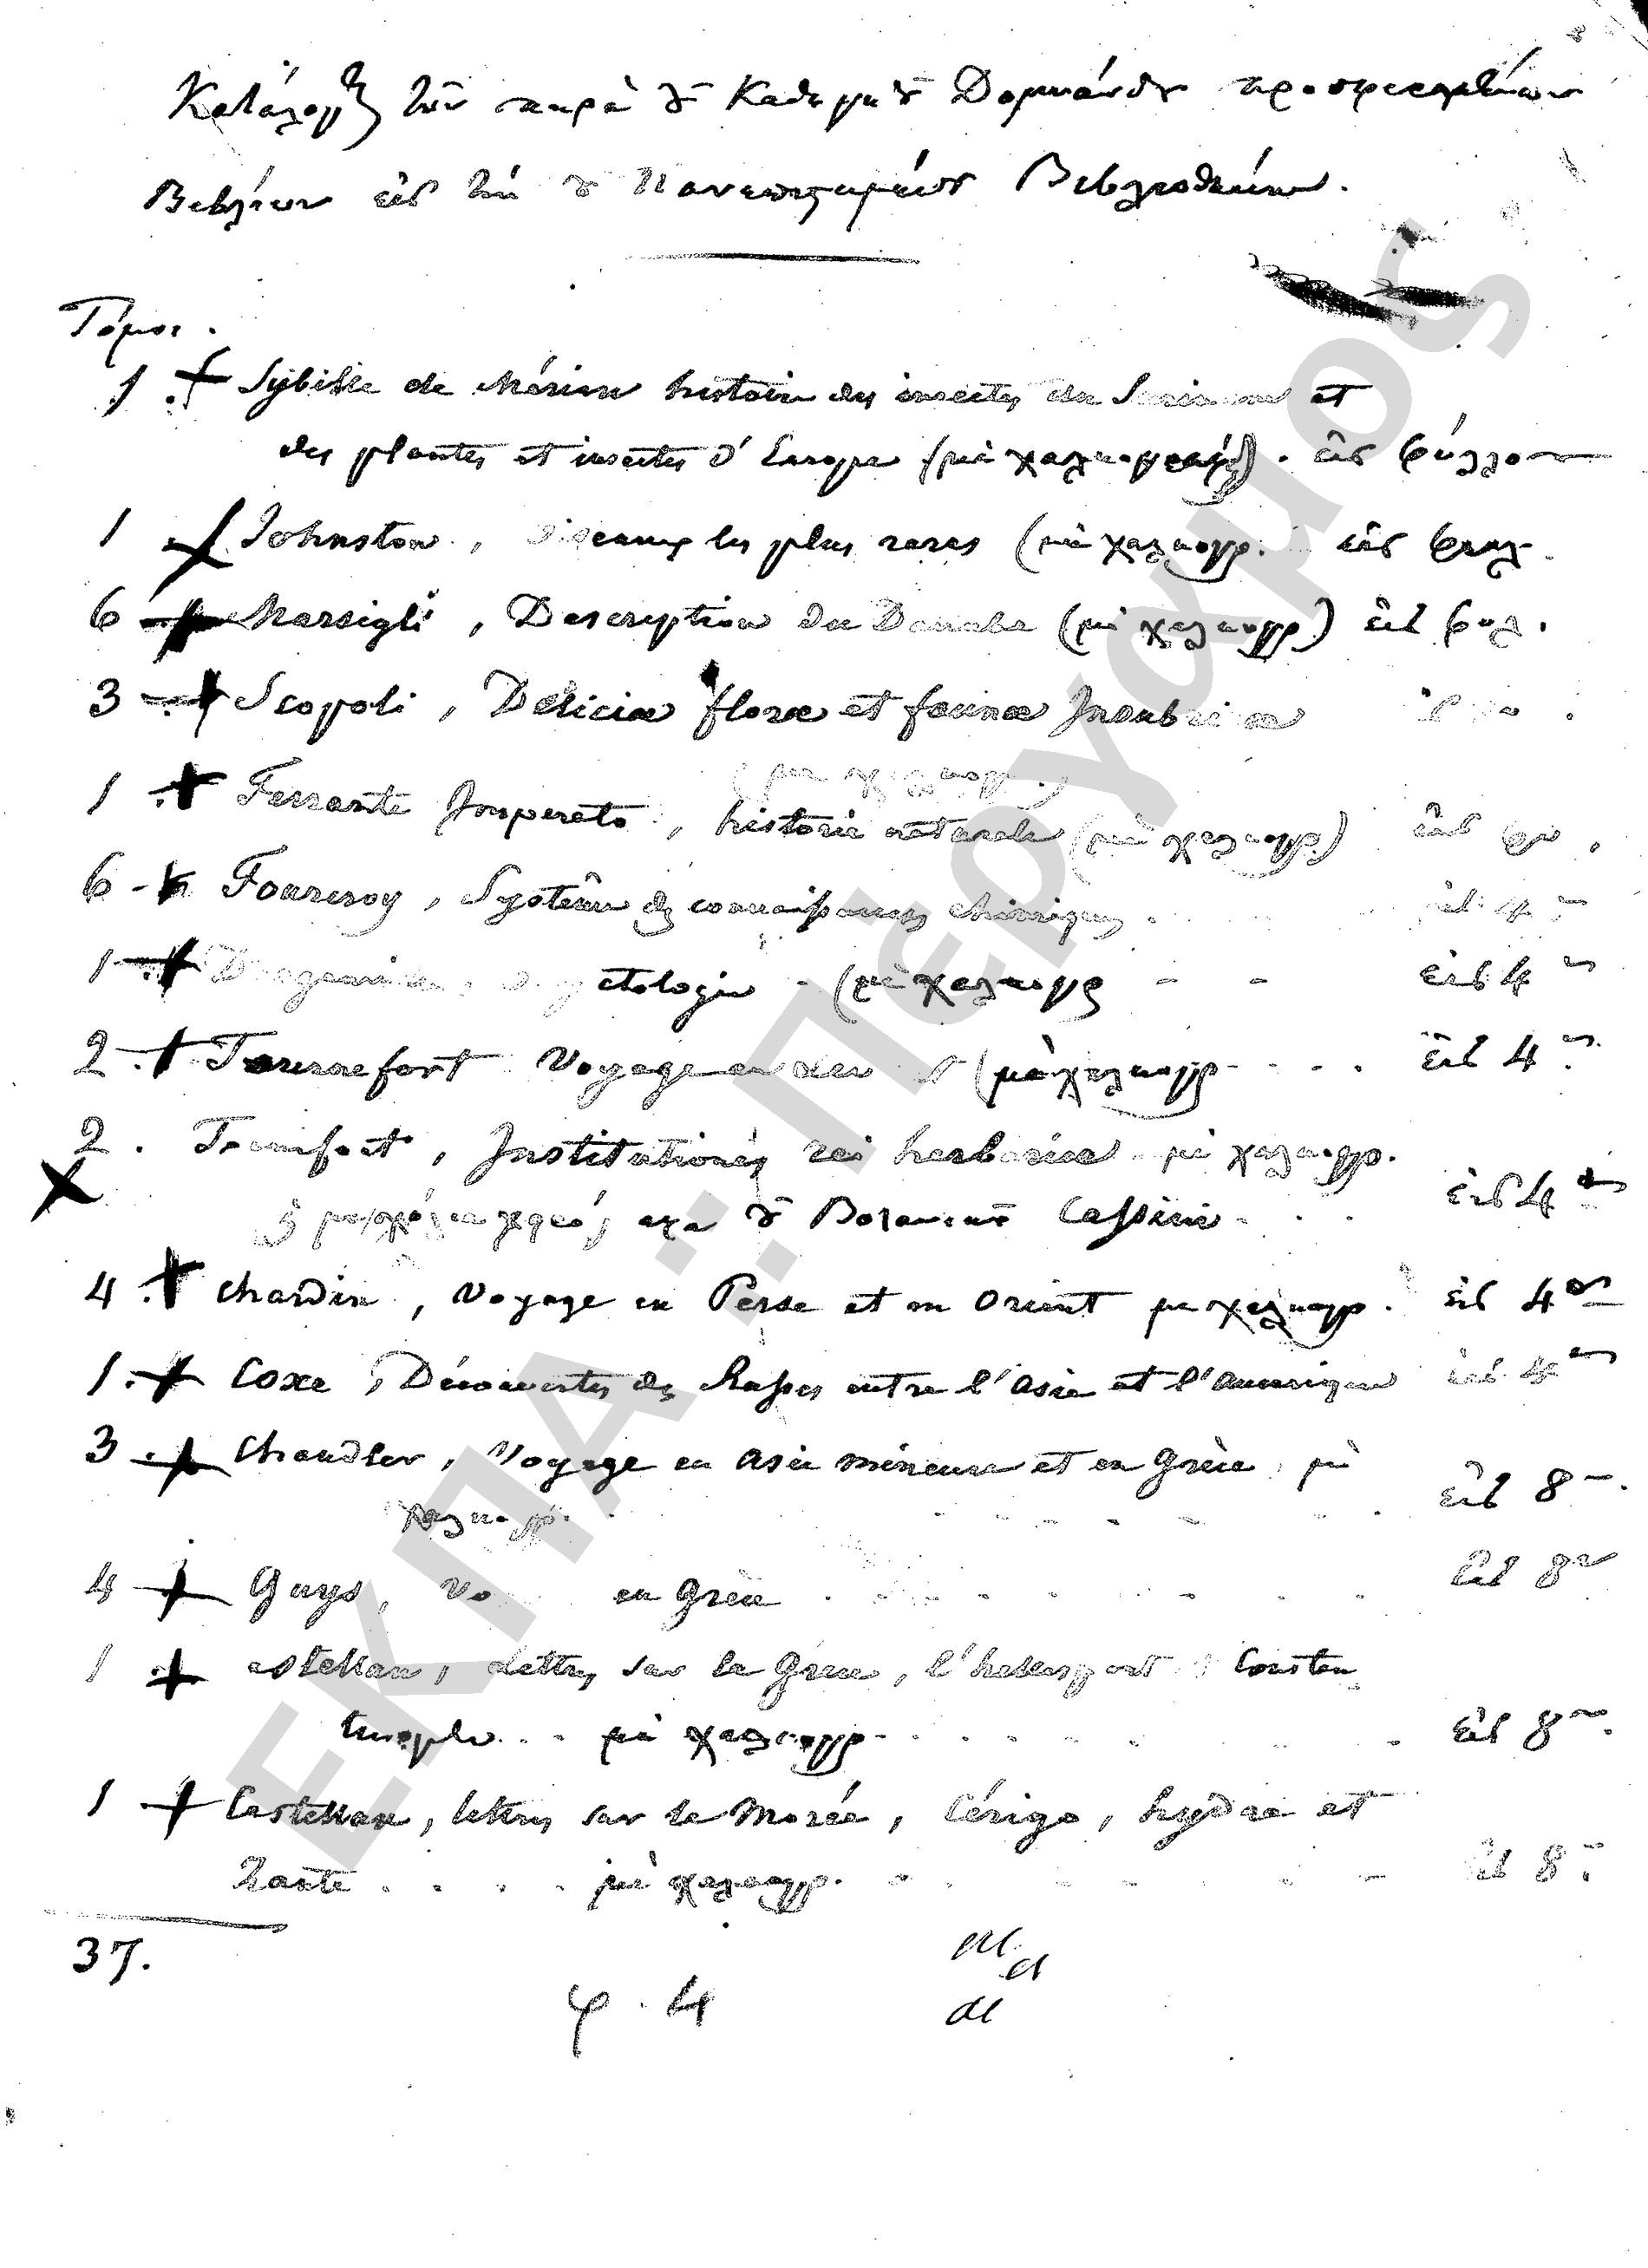 Κατάλογος τῶν παρὰ τοῦ Καθηγητοῦ Δομνάνδου προσφερομένων
Βιβλίων εἰς τὴν τοῦ Πανεπιστημείου Βιβλιοθήκην.
Τόμοι.
1 Sybille de Mérian histoire des insectes de Surinam et
des plantes et insectes d'Europe (μὲ χαλκογραφ.) . εἰς φύλλον
1 Johnston, Oiseaux les plus rares (μὲ χαλκογρ. εἰς φυλ.
6 Marsigli, Description du Danube (μὲ χαλκογρ) εἰς φυλ.
3 Scopoli, Deliciæ floræ et faunæ Insubricæ
(μὲ χαλκογρ.)
1 Ferrante Imperato, historia naturale (μὲ χαλκογρ.) εἰς φυ.
6 Fourcroy, Systême des connaissances chimiques . εἰς 4ον
1 etologie - (μὲ χαλκογρ - - εἰς 4ον
2 Tournefort Voyage au Lev (μὲ χαλκογρ - . . εἰς 4ον
2 . Tournefort, Institutiones rei herbariæ μὲ χαλκογρ.
τοῦ Βοτανικοῦ Cassini . . εἰς 4ον
4 Chardin, Voyage en Perse et en Orient με χαλκογρ. εἰς 4ον
1 Coxe, Découvertes des Russes entre l'Asie et l'Amerique εἰς 4ον
3 Chandler, Voyage en Asie mineure et en Grèce, μὲ
χαλκογρ. εἰς 8ον.
4 Guys, Vo en Grèce εἰς 8ον
1 astellan, Lettres sur la Grece, l'hellespont Constan
tinople . . . μὲ χαλκογρ. εἰς 8ον.
1 Castellan, lettres sur la Morée, Cérigo, hydra et
Zante . . . . μὲ χαλκογρ. εἰς 8ον
37.
φ . 4
ΕΚΠΑ - Πέργαμος